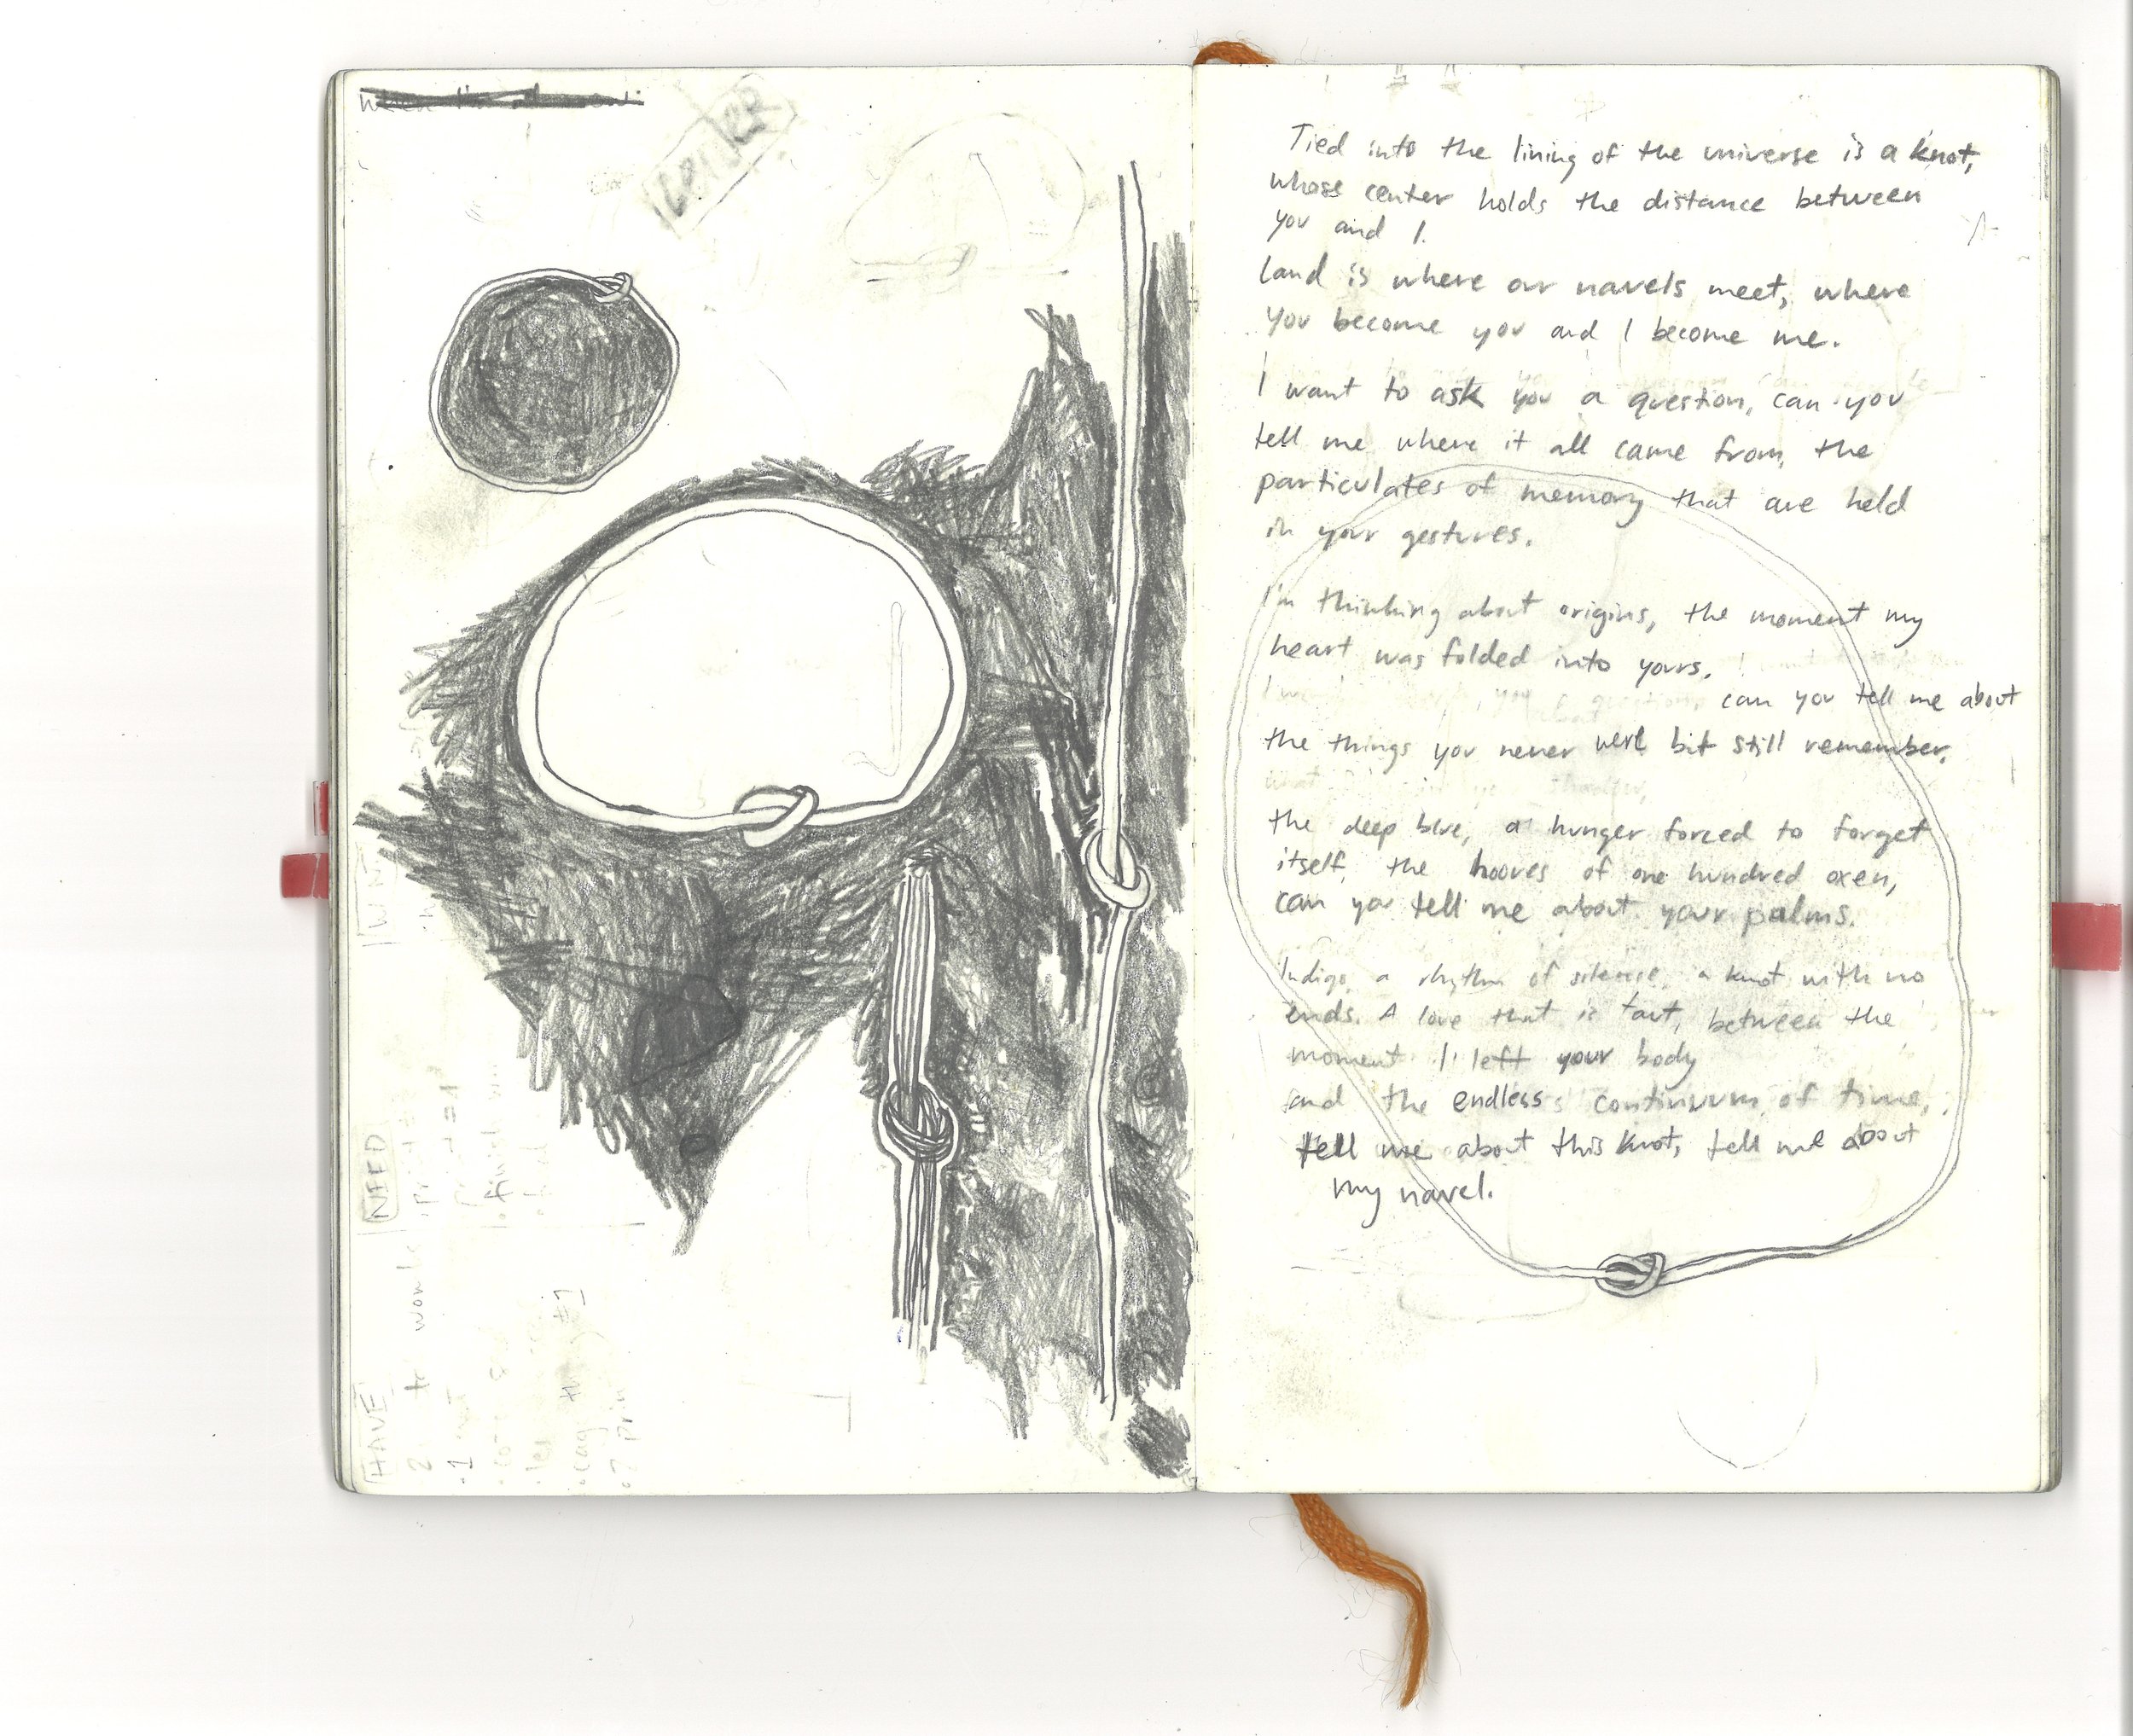 Tied into the lining of the universe is a knot,
whose center holds the distance between
you and I.
Land is where our navels meet, where
you become you and I become me.
I want to ask you a question, can you
tell me where it all came from, the
particulates of memory that are held
in your gestures.
I'm thinking about origins, the moment my
heart was folded into yours.
can you tell me about
the things you never were bit still remember.
the deep blue, a hunger forced to forget
itself, the hooves of one hundred oxen,
can you tell me about your palms.
Indigo, a rhythm of silence, a knot with no
ends. A love that is taut, between the
moment I left your body
and the endless continuum of time,
tell me about this knot, tell me about
my navel.
NEED
HAVE